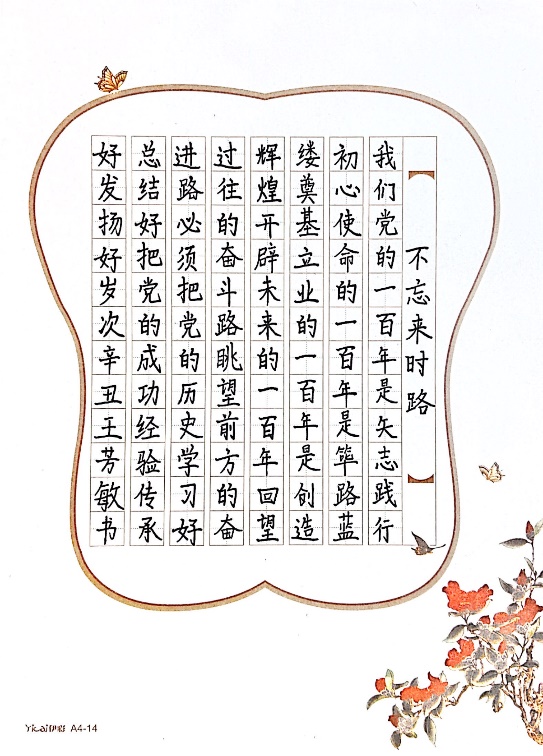 不忘来时路
我们党的一百年是矢志践行
初心使命的一百年是筚路蓝
缕奠基立业的一百年是创造
辉煌开辟未来的一百年回望
过往的奋斗路眺望前方的奋
进路必须把党的历史学习好
总结好把党的成功经验传承
好发扬好岁次辛丑王芳敏书
Yicai伊彩 A4-14